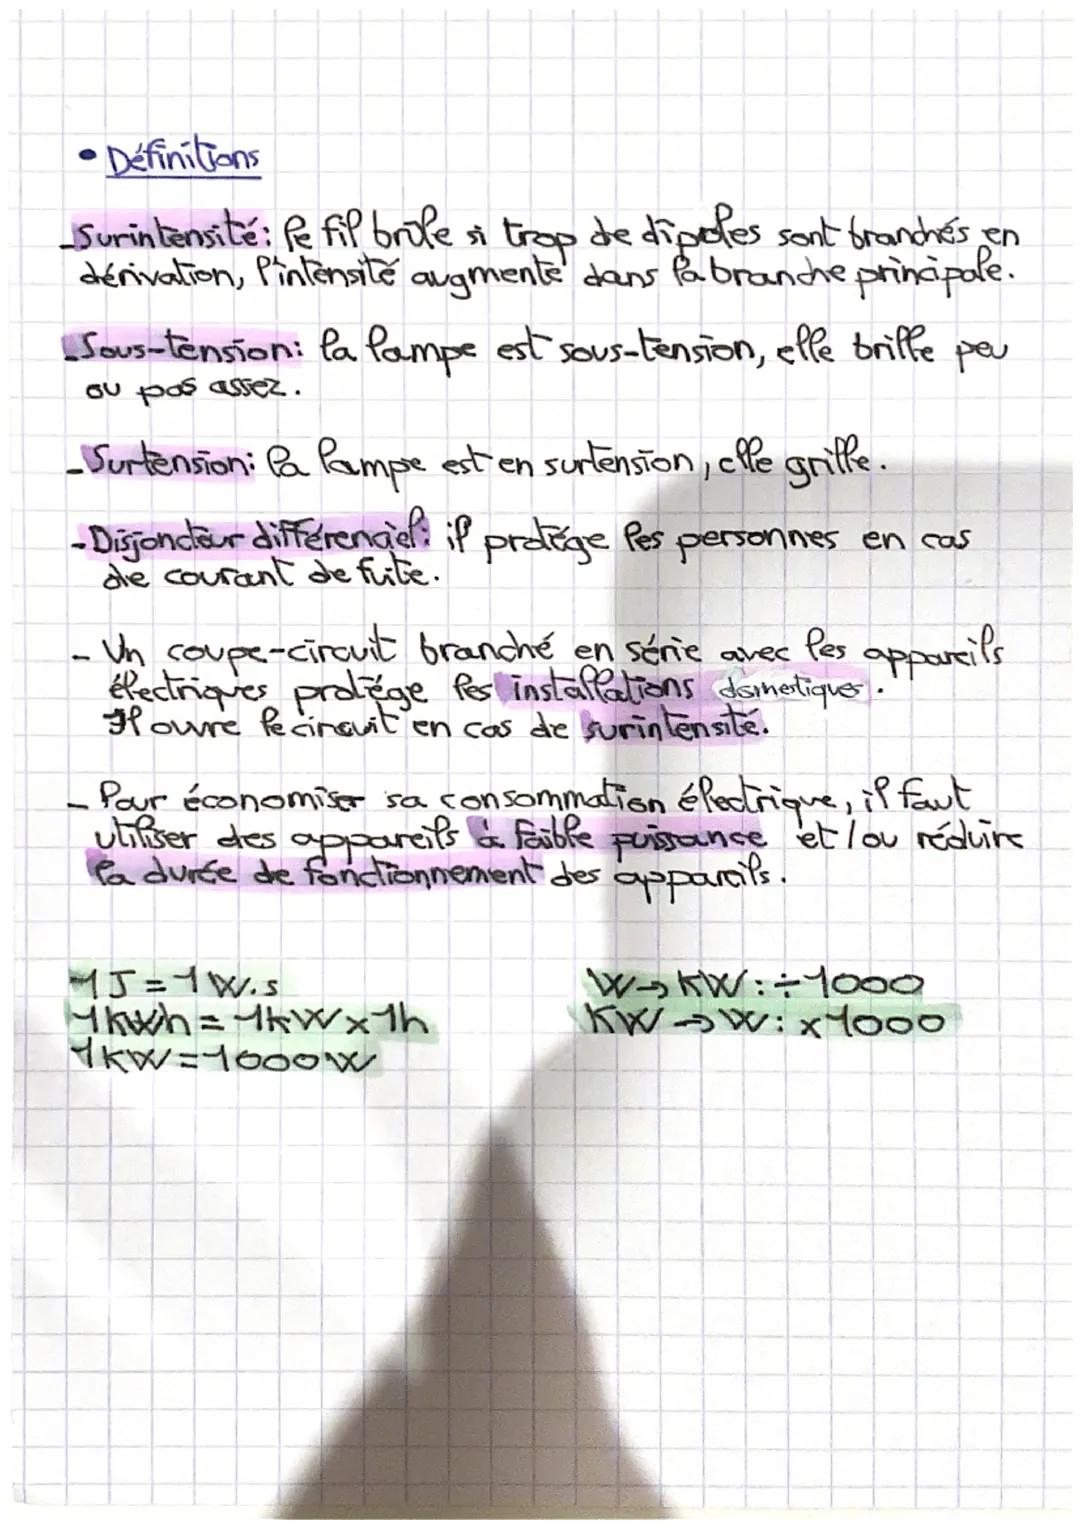 • Définitions
- Surintensité: le fil brûle si trop de dipoles sont branchés en
dérivation, l'intensité augmente dans la branche principale.
- Sous-tension: la lampe est sous-tension, elle brille peu
ou pas assez.
- Surtension: la lampe est en surtension, elle grille.
- Disjoncteur différenciel: il protége les personnes en cas
de courant de fuite.
- Un coupe-circuit branché en série avec les appareils
électriques protége les installations domestiques.
Il ouvre le circuit en cas de surintensité.
- Pour économiser sa consommation électrique, il faut
utiliser des appareils à faible puissance et/ou réduire
la durée de fonctionnement des appareils.
1J=1W.s
1kWh=1kWx1h
1kW=1000W
W→KW:÷1000
KW→W:x1000